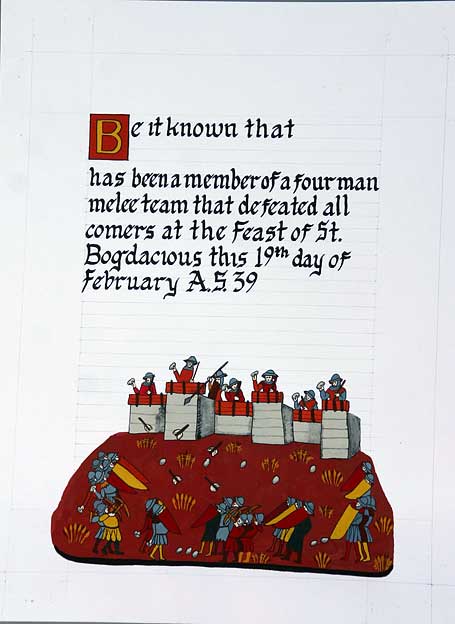 Be it known that
has been a member of a four man
melee team that defeated all
comers at the Feast of St.
Bogdacious this 19th day of
February A.S. 39